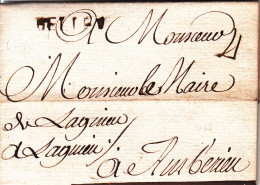 BELLEY
A Monsieur
4
Monsieur le Maire
de Lagnieu
a Lagnieu
à Ambérieu